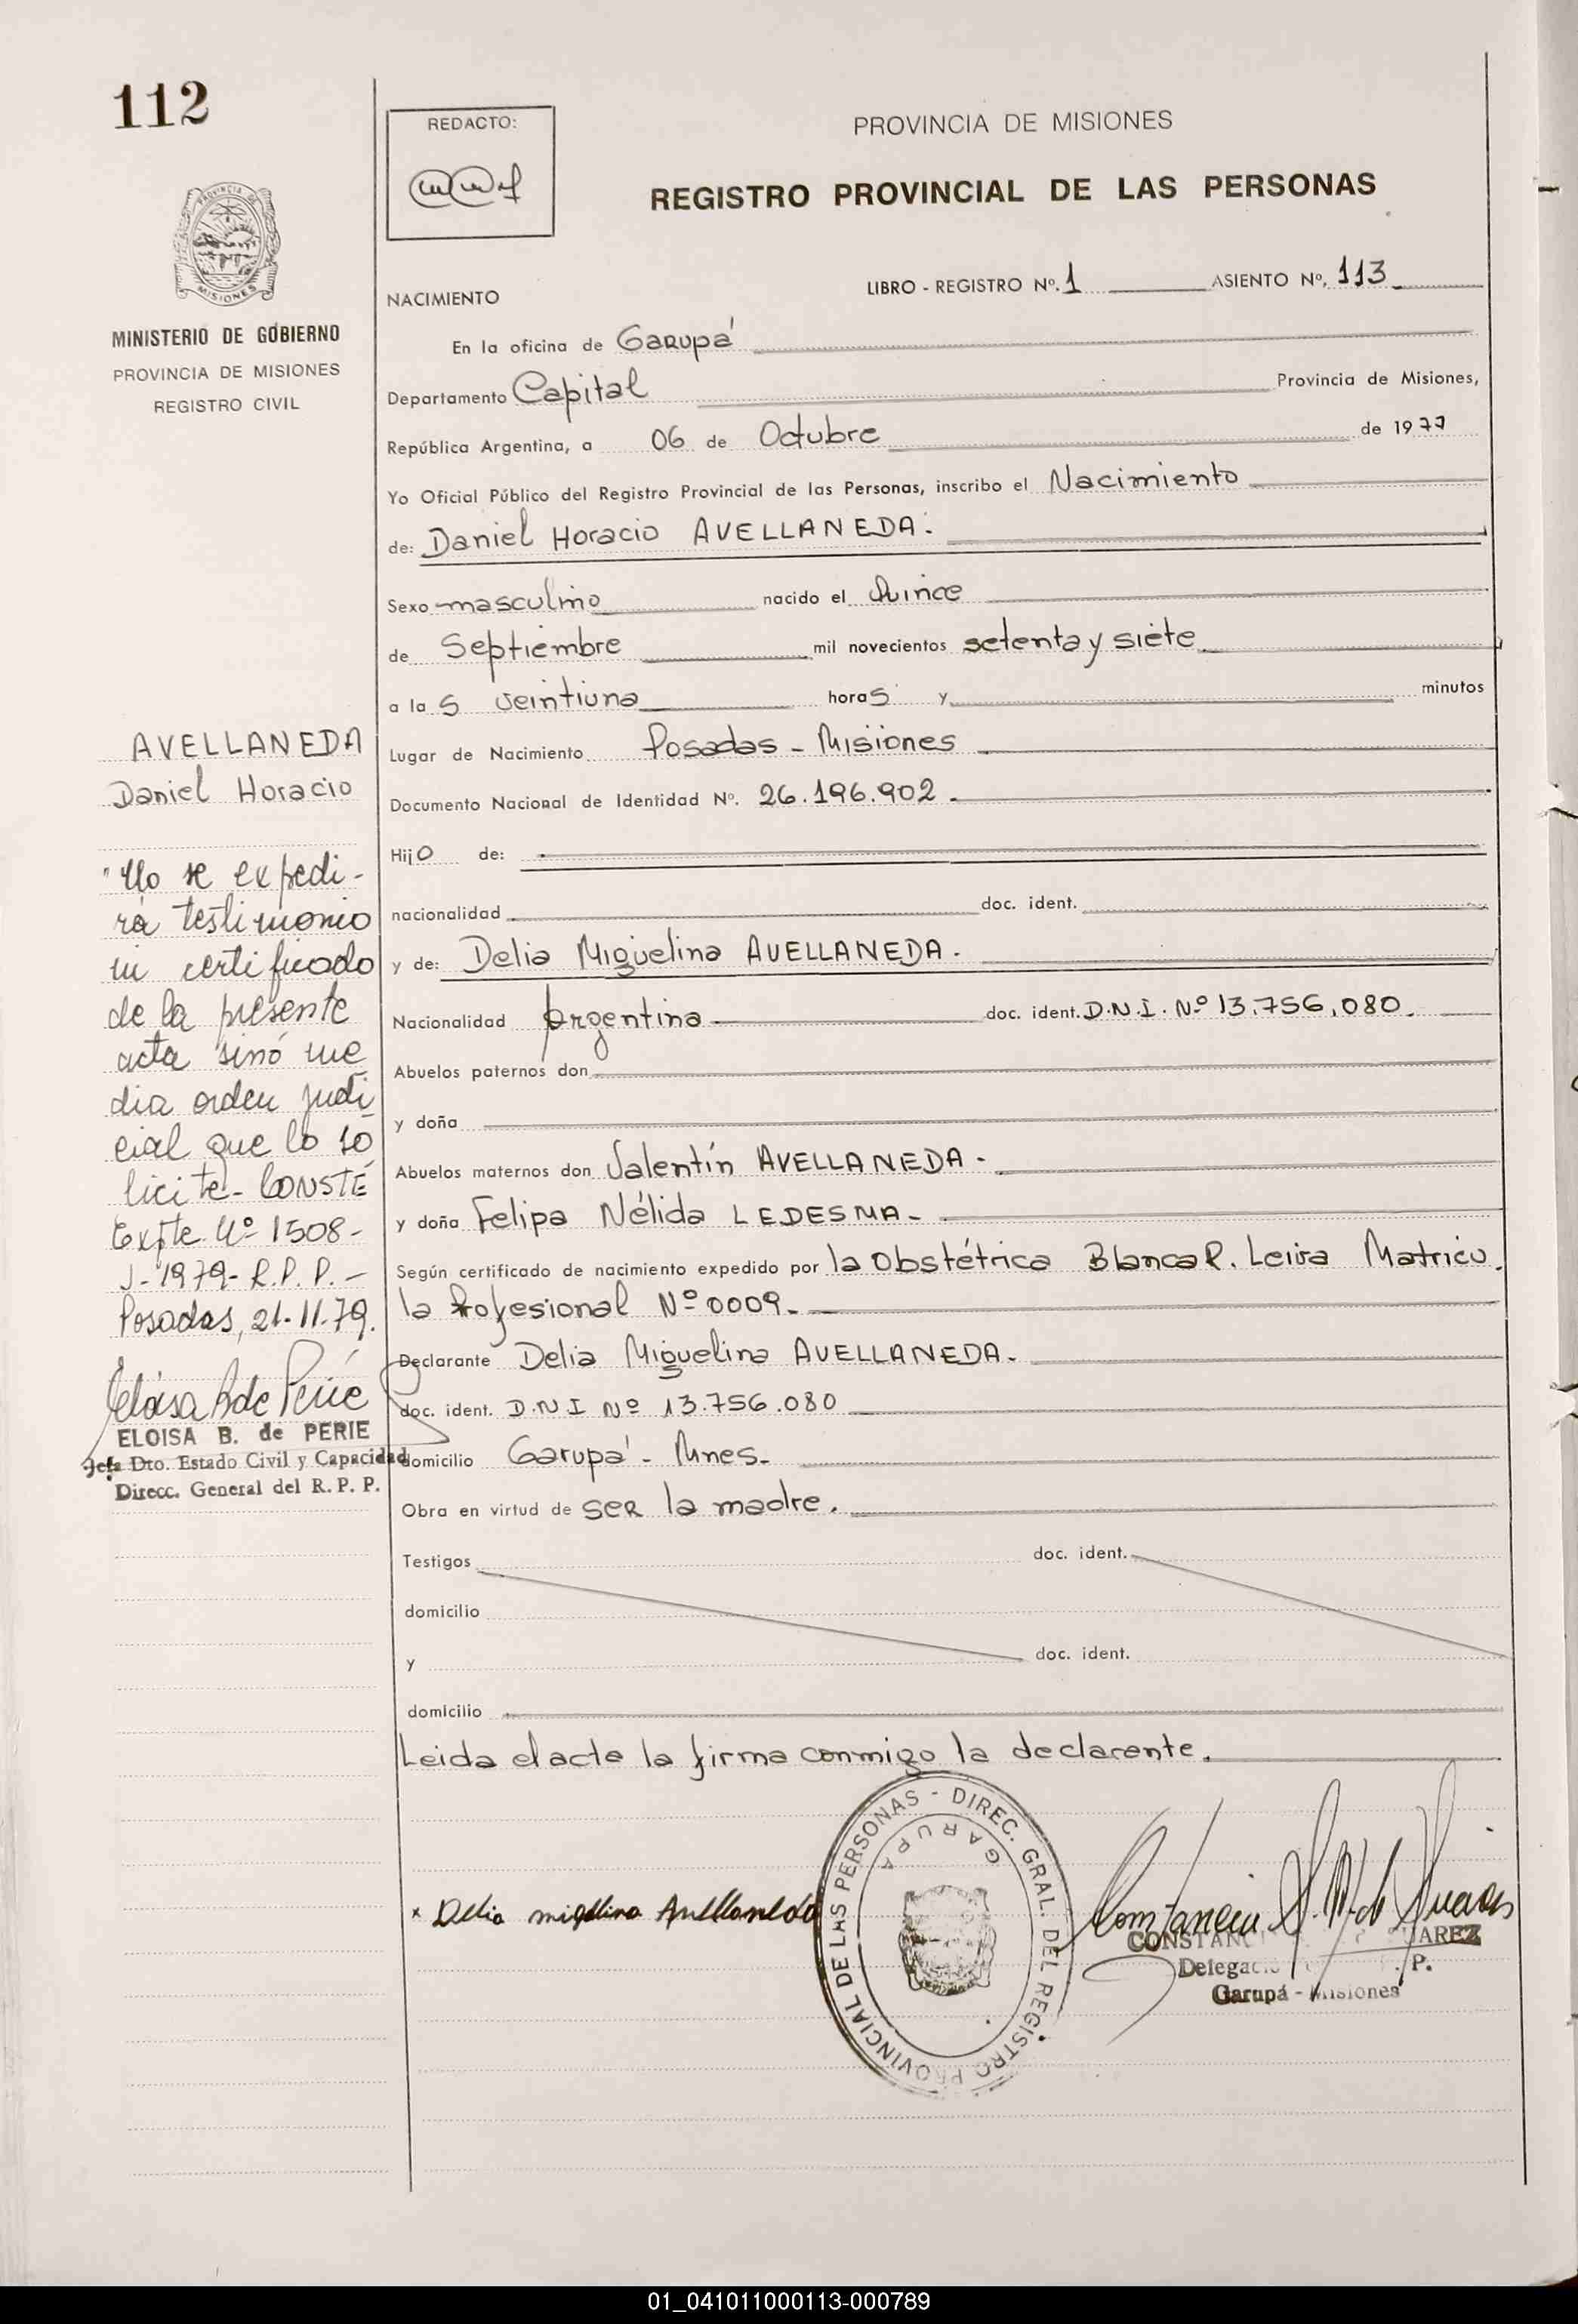 112
REDACTO:
PROVINCIA DE MISIONES
REGISTRO PROVINCIAL DE LAS PERSONAS
PROVINCIA
MISIONES
MINISTERIO DE GOBIERNO
PROVINCIA DE MISIONES
REGISTRO CIVIL
LIBRO - REGISTRO Nº. 1 ASIENTO Nº. 113
NACIMIENTO
En la oficina de Garupá
Departamento Capital Provincia de Misiones,
República Argentina, a 06 de Octubre de 1977
Yo Oficial Público del Registro Provincial de las Personas, inscribo el Nacimiento
de: Daniel Horacio AVELLANEDA.
Sexo masculino nacido el Quince
de Septiembre mil novecientos setenta y siete
a la s veintiuna horas y minutos
Lugar de Nacimiento Posadas - Misiones
Documento Nacional de Identidad Nº. 26.196.902
Hijo de:
nacionalidad doc. ident.
y de: Delia Miguelina AVELLANEDA.
Nacionalidad Argentina doc. ident. D.N.I. Nº 13.756.080.
Abuelos paternos don
y doña
Abuelos maternos don Valentín AVELLANEDA.-
y doña Felipa Nélida LEDESMA.-
Según certificado de nacimiento expedido por la Obstétrica Blanca R. Leiva Matricu
la Profesional Nº 0009.
Declarante Delia Miguelina AVELLANEDA.
doc. ident. D.N.I Nº 13.756.080
domicilio Garupá - Mnes.
Obra en virtud de ser la madre.
Testigos doc. ident.
domicilio
y doc. ident.
domicilio
Leida el acta la firma conmigo la declarante.
AVELLANEDA
Daniel Horacio
"No se expedi-
rá testimonio
ni certificado
de la presente
acta sinó me
dia orden judi
cial que lo so
licite- CONSTE
Expte. Nº 1508-
J-1979- R.P.P.-
Posadas, 21-11-79.
ELOISA B. de PERIE
Jefa Dto. Estado Civil y Capacidad
Direcc. General del R. P. P.
x Delia migelina Avellaneda
DIREC. GRAL. DEL REGISTRO PROVINCIAL DE LAS PERSONAS -
GARUPA
Garupá - Misiones
01_041011000113-000789